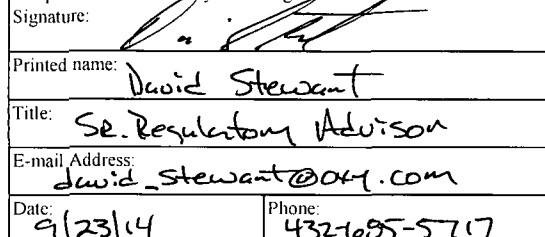 Signature:
Printed name: David Stewart
Title: Sr. Regulatory Advisor
E-mail Address: david_stewart@oxy.com
Date: 9/23/14 Phone: 432-685-5717